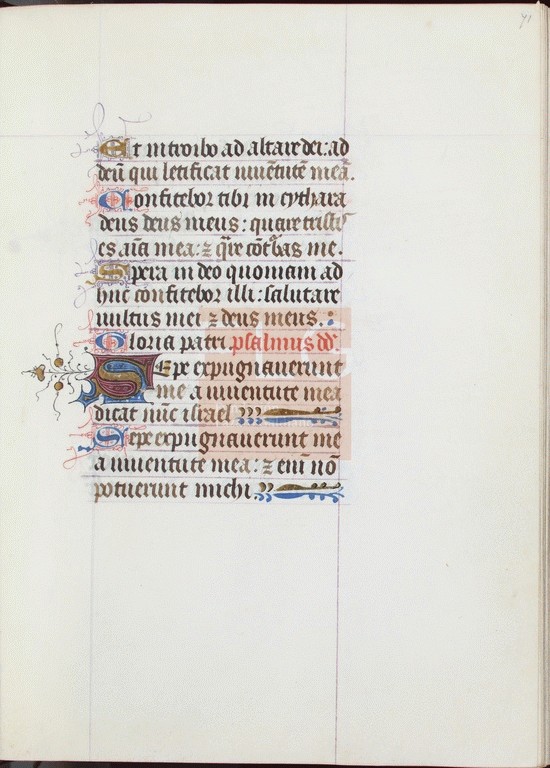 71
Et introibo ad altare dei: ad
deū qui letificat iuuētutē meā.
Confitebor tibi in cythara
deus deus meus: quare tristis
es aīa mea: ⁊ q̄re cōtbas me.
Spera in deo quoniam ad
huc confitebor illi: salutare
uultus mei ⁊ deus meus.
Gloria patri. psalmus dd.
Sepe expugnauerunt
me a iuuentute mea
dicat nūc israel
Sepe expugnauerunt me
a iuuentute mea: ⁊ enī nō
potuerunt michi.